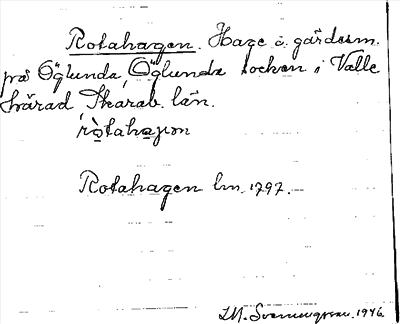 Rotahagen. Hage å gärdesm.
på Öglunda, Öglunda socken i Valle
härad Skarab. län.
ròtahagon
Rotahagen lm. 1797.
1946.